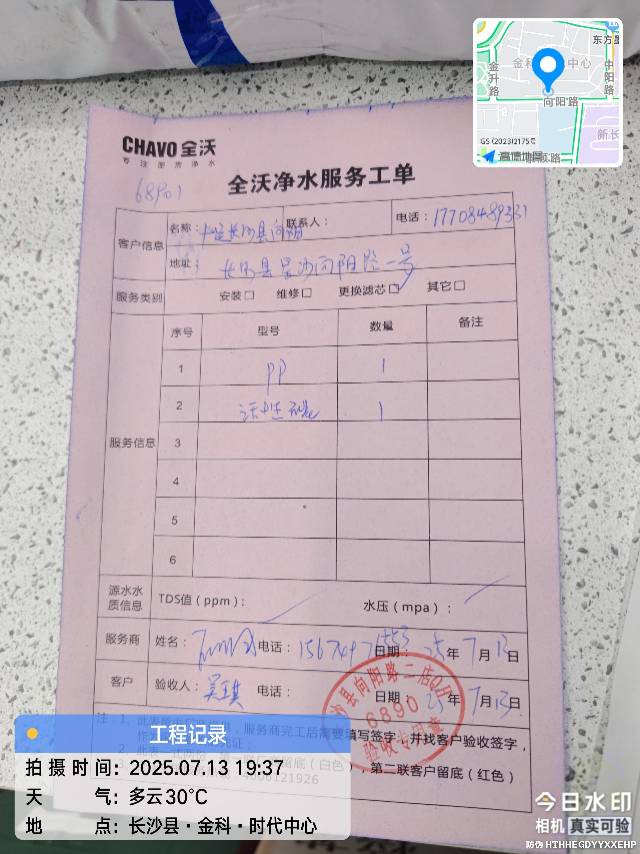 东方星
金升路
金科 中心
中阳路
向阳路
新长
GS (2023)2175号
高德地图
CHAVO全沃
专注厨房净水
68901
全沃净水服务工单
客户信息
名称： 长沙县向阳
联系人：
电话：17708489331
地址： 长沙县星沙向阳路一号
服务类别
安装□ 维修□ 更换滤芯☑ 其它□
服务信息
序号 型号 数量 备注
1 PP 1
2 活性炭 1
3
4
5
6
源水水质信息
TDS值（ppm）：
水压（mpa）：
服务商 姓名： 电话： 日期：25年7月13日
客户 验收人：吴琪 电话： 日期：25年7月13日
县向阳路二店
6890
验收专用章
服务商完工后需要填写签字，并找客户验收签字，
留底（白色），第二联客户留底（红色）
4008121926
工程记录
拍摄时间：2025.07.13 19:37
天气：多云30℃
地点：长沙县·金科·时代中心
今日水印
相机 真实可验
防伪 HTHHEGDYYXXEHP